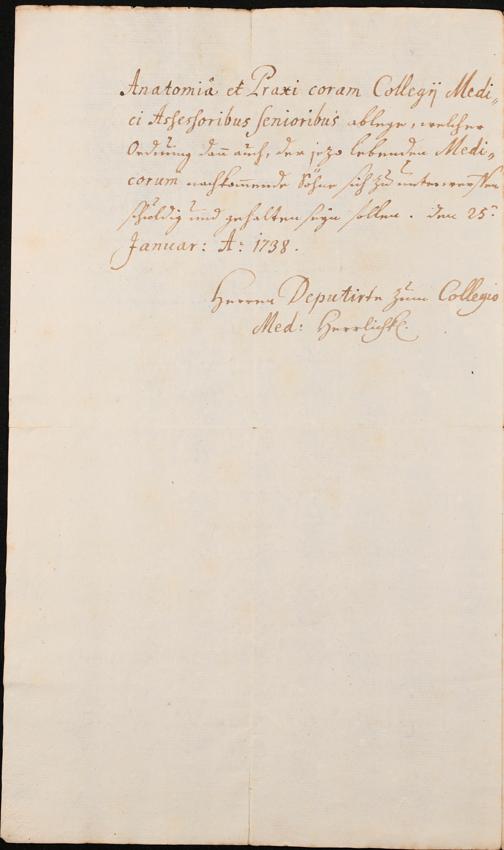 Anatomiâ et Praxi coram Collegij Medi-
ci Assessoribus senioribus ablege, welcher
Ordnung dañ auch, der jezo lebenden Medi-
corum nachkom̃ende Söhne sich zu unterwerffen
schuldig und gehalten seyn sollen. den 25.
Januar: A: 1738.
Herren Deputirte zum Collegio
Med: Herrlichk: